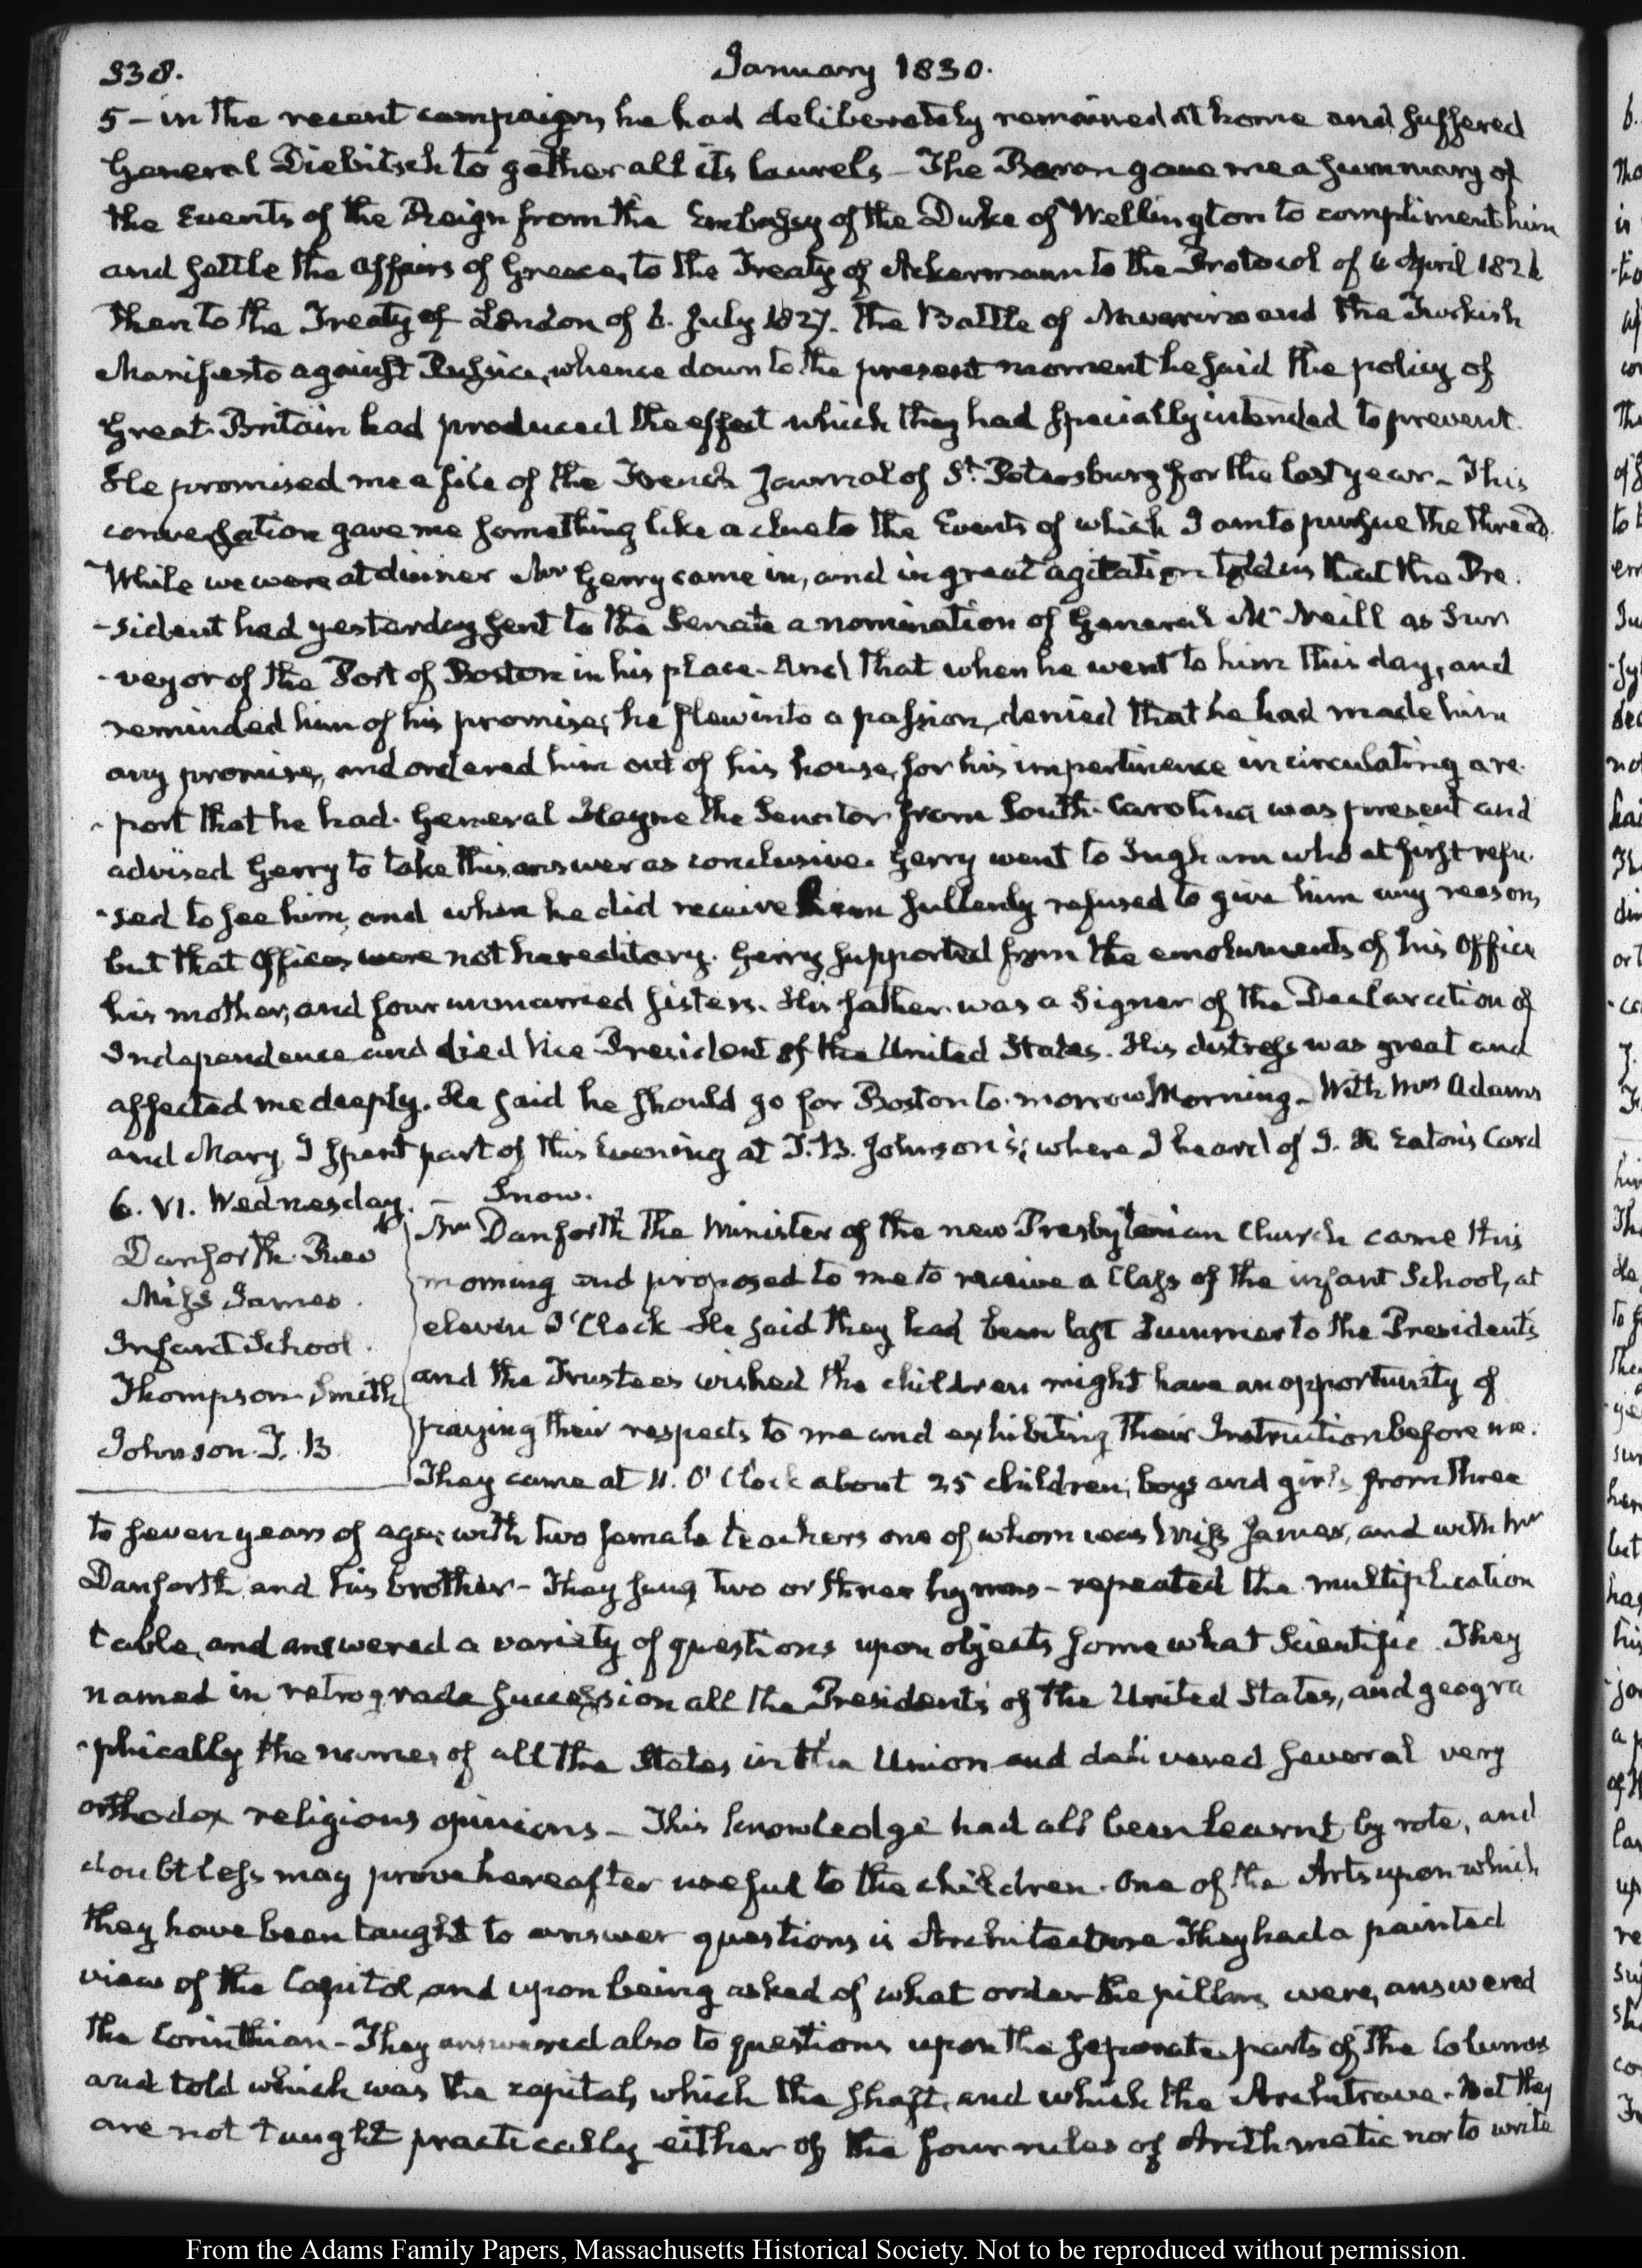 338.
January 1830.
5 – in the recent campaign, he had deliberately remained at home and suffered
General Diebitsch to gather all its laurels – The Baron gave me a summary of
the Events of the Reign from the Embassy of the Duke of Wellington to compliment him
and settle the affairs of Greece, to the Treaty of Ackermann to the Protocol of 4 April 1826
then to the Treaty of London of 6. July 1827. the Battle of Navarino and the Turkish
Manifesto against Russia, whence down to the present moment he said the policy of
Great-Britain had produced the effect which they had specially intended to prevent.
He promised me a file of the French Journal of St. Petersburg for the last year – This
conversation gave me something like a clue to the Events of which I am to pursue the thread.
While we were at dinner Mr Gerry came in, and in great agitation told us that the Pre-
-sident had yesterday sent to the Senate a nomination of General McNeill as Sur
-veyor of the Port of Boston in his place. And that when he went to him this day, and
reminded him of his promise, he flew into a passion, denied that he had made him
any promise, and ordered him out of his house, for his impertinence in circulating a re-
-port that he had. General Hayne the Senator from South-Carolina was present and
advised Gerry to take this answer as conclusive. Gerry went to Ingham who at first refu-
-sed to see him, and when he did receive him sullenly refused to give him any reason,
but that Offices were not hereditary. Gerry supported from the emoluments of his Office
his mother, and four unmarried sisters. His father was a Signer of the Declaration of
Independence and died Vice-President of the United States. His distress was great and
affected me deeply. He said he should go for Boston to-morrow Morning – With Mrs Adams
and Mary, I spent part of this Evening at T. B. Johnson's; where I heard of J. H. Eaton's Card
6. VI. Wednesday. – Snow.
Danforth Rev
Miss James.
Infant School.
Thompson Smith
Johnson T. B
Mr Danforth the Minister of the new Presbyterian Church came this
morning and proposed to me to receive a Class of the infant School, at
eleven O'Clock He said they had been last Summer to the President's
and the Trustees wished the children might have an opportunity of
paying their respects to me and exhibiting their Instruction before me.
They came at 11. O'Clock about 25 children, boys and girls from three
to seven years of age, with two female teachers one of whom was Miss James, and with Mr
Danforth and his brother – They sung two or three hymns – repeated the multiplication
table, and answered a variety of questions upon objects somewhat Scientific They
named in retrograde succession all the Presidents of the United States, and geogra
-phically the names of all the States in the Union and delivered several very
orthodox religious opinions – This knowledge had all been learnt by rote, and
doubtless may prove hereafter useful to the children. One of the Arts upon which
they have been taught to answer questions is Architecture They had a painted
view of the Capitol, and upon being asked of what order the pillars were, answered
the Corinthian – They answered also to questions upon the separate parts of the Columns
and told which was the capital, which the shaft, and which the Architrave. But they
are not taught practically either of the four rules of Arithmetic nor to write
From the Adams Family Papers, Massachusetts Historical Society. Not to be reproduced without permission.